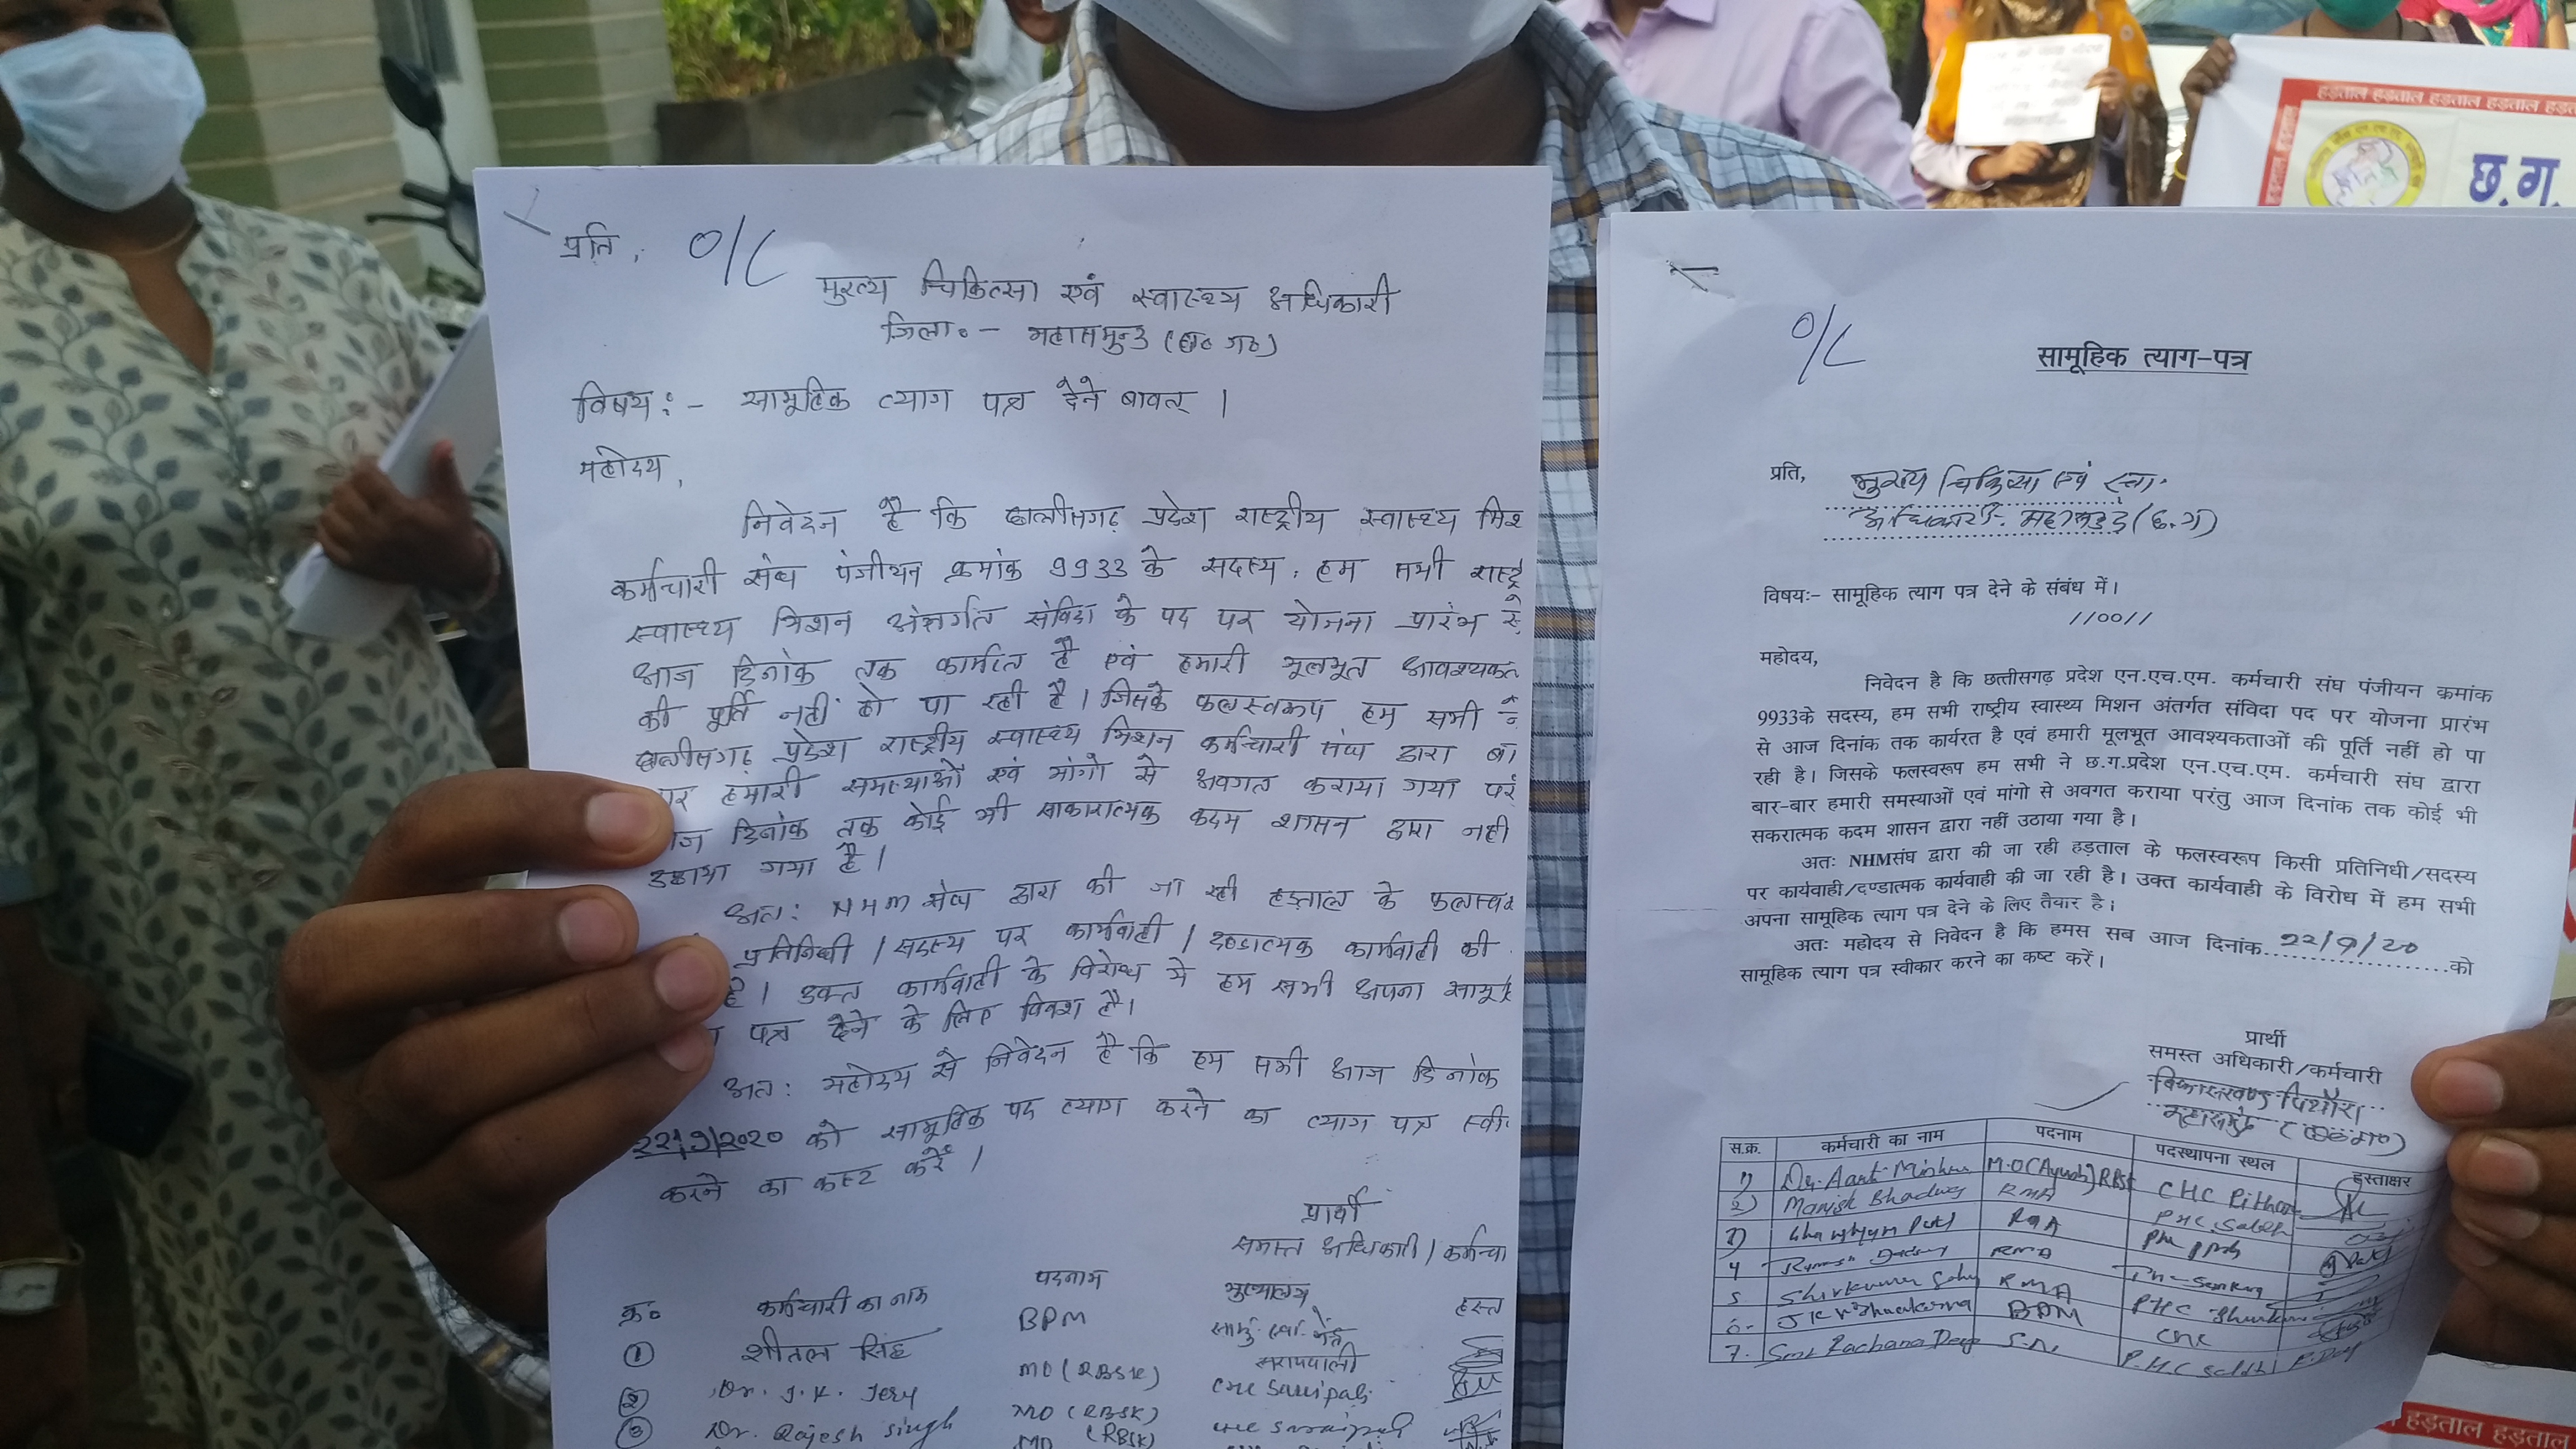 हड़ताल हड़ताल हड़ताल हड़ताल
छ.ग.
प्रति,
O/C
मुख्य चिकित्सा एवं स्वास्थ्य अधिकारी
जिला०- महासमुन्द (छ० ग०)
विषय:- सामूहिक त्याग पत्र देने बावत् ।
महोदय,
निवेदन है कि छत्तीसगढ़ प्रदेश राष्ट्रीय स्वास्थ्य मिश
कर्मचारी संघ पंजीयन क्रमांक 9933 के सदस्य, हम सभी राष्ट्री
स्वास्थ्य मिशन अंतर्गत संविदा के पद पर योजना प्रारंभ से
आज दिनांक तक कार्यरत है एवं हमारी मूलभूत आवश्यकत
की पूर्ति नहीं हो पा रही है। जिसके फलस्वरूप हम सभी ने
छत्तीसगढ़ प्रदेश राष्ट्रीय स्वास्थ्य मिशन कर्मचारी संघ द्वारा बा
र हमारी समस्याओं एवं मांगो से अवगत कराया गया परं
ज दिनांक तक कोई भी साकारात्मक कदम शासन द्वारा नही
उठाया गया है।
अत: NHM संघ द्वारा की जा रही हड़ताल के फलस्वरू
प्रतिनिधी / सदस्य पर कार्यवाही / दण्डात्मक कार्यवाही की
है। उक्त कार्यवाही के विरोध में हम सभी अपना सामूहि
पत्र देने के लिए विवश है।
अत: महोदय से निवेदन है कि हम सभी आज दिनांक
22/9/2020 को सामूहिक पद त्याग करने का त्याग पत्र स्वी
करने का कष्ट करें।
प्रार्थी
समस्त अधिकारी / कर्मचा
क्र० कर्मचारी का नाम पदनाम मुख्यालय हस्त
① शीतल सिंह BPM सामु. स्वा. केंद्र
सरायपाली
② Dr. J. K. MO (RBSK) CHC Saraipali
③ Dr. Rajesh Singh MO (RBSK) CHC Saraipali
MO (RBSK)
O/C
सामूहिक त्याग-पत्र
प्रति, मुख्य चिकित्सा एवं स्वा.
अधिकारी महासमुंद (छ.ग)
विषय:- सामूहिक त्याग पत्र देने के संबंध में।
//00//
महोदय,
निवेदन है कि छत्तीसगढ़ प्रदेश एन.एच.एम. कर्मचारी संघ पंजीयन क्रमांक
9933के सदस्य, हम सभी राष्ट्रीय स्वास्थ्य मिशन अंतर्गत संविदा पद पर योजना प्रारंभ
से आज दिनांक तक कार्यरत है एवं हमारी मूलभूत आवश्यकताओं की पूर्ति नहीं हो पा
रही है। जिसके फलस्वरूप हम सभी ने छ.ग.प्रदेश एन.एच.एम. कर्मचारी संघ द्वारा
बार-बार हमारी समस्याओं एवं मांगो से अवगत कराया परंतु आज दिनांक तक कोई भी
सकरात्मक कदम शासन द्वारा नहीं उठाया गया है।
अतः NHMसंघ द्वारा की जा रही हड़ताल के फलस्वरूप किसी प्रतिनिधी/सदस्य
पर कार्यवाही/दण्डात्मक कार्यवाही की जा रही है। उक्त कार्यवाही के विरोध में हम सभी
अपना सामूहिक त्याग पत्र देने के लिए तैयार है।
अतः महोदय से निवेदन है कि हमस सब आज दिनांक 22/9/20 को
सामूहिक त्याग पत्र स्वीकार करने का कष्ट करें।
प्रार्थी
समस्त अधिकारी/कर्मचारी
विकासखण्ड पिथौरा
महासमुंद (छ०ग०)
स.क्र. कर्मचारी का नाम पदनाम पदस्थापना स्थल हस्ताक्षर
1) Dr. Aarti Mishra M.O (Ayush) RBSK CHC Pithora
2) Manish RMA PHC
3) RMA
4 RMA
5 Shivkumar Sahu RMA PHC
6- BPM CHC
7. Smt Rachana S.N. P.H.C
हड़ताल